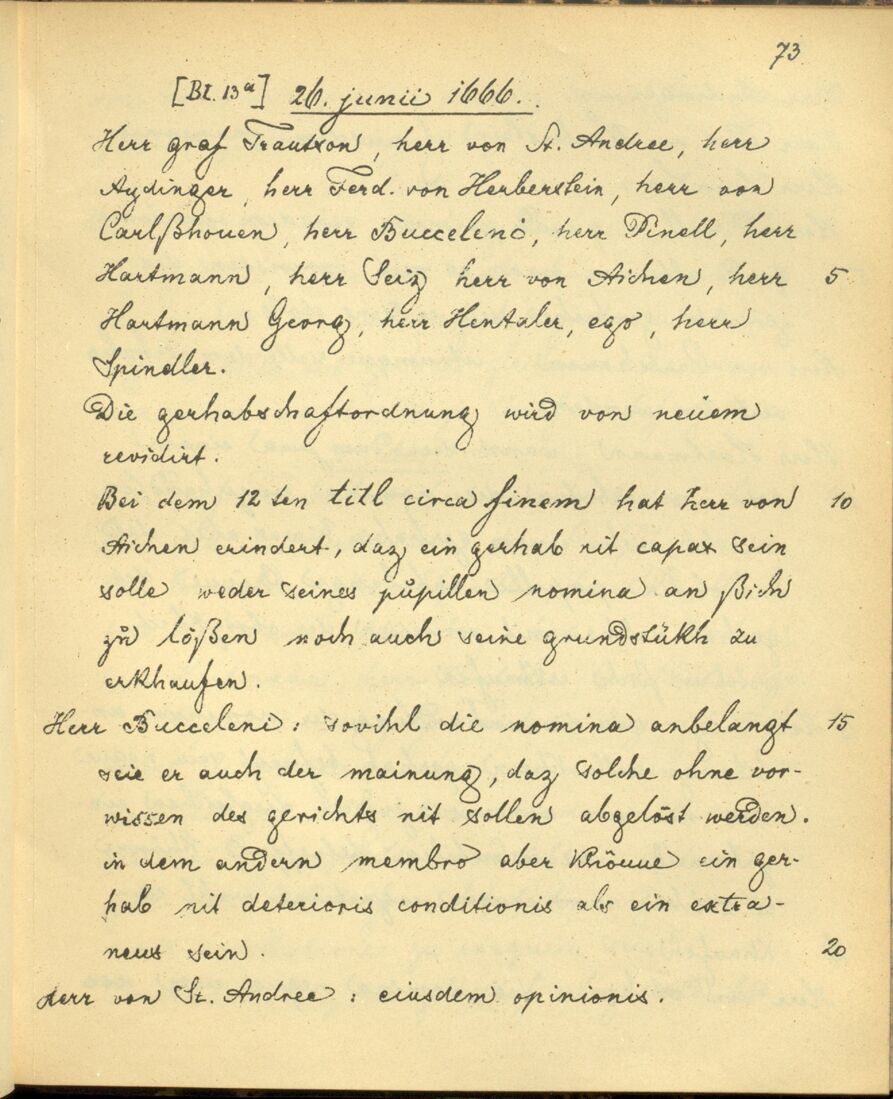 73
[Bl. 13a] 26. junii 1666.
Herr graf Trautson, herr von St. Andree, herr
Aydinger, herr Ferd. von Herberstein, herr von
Carlßhouen, herr Bucceleni, herr Pinell, herr
Hartmann, herr Seiz herr von Aichen, herr 5
Hartmann Georg, herr Hentaler, ego, herr
Spindler.
Die gerhabschaftordnung wird von neüem
revidirt.
Bei dem 12 ten titl circa finem hat herr von 10
Aichen erindert, daz ein gerhab nit capax sein
solle weder seines pupillen nomina an ßich
zů lößen noch auch seine grundstükh zu
erkhaufen.
Herr Bucceleni: sovihl die nomina anbelangt 15
seie er auch der mainung, daz solche ohne vor-
wissen des gerichts nit sollen abgelöst werden.
in dem andern membro aber khönne ein ger-
hab nit deterioris conditionis als ein extra-
neus sein. 20
Herr von St. Andree: eiusdem opinionis.